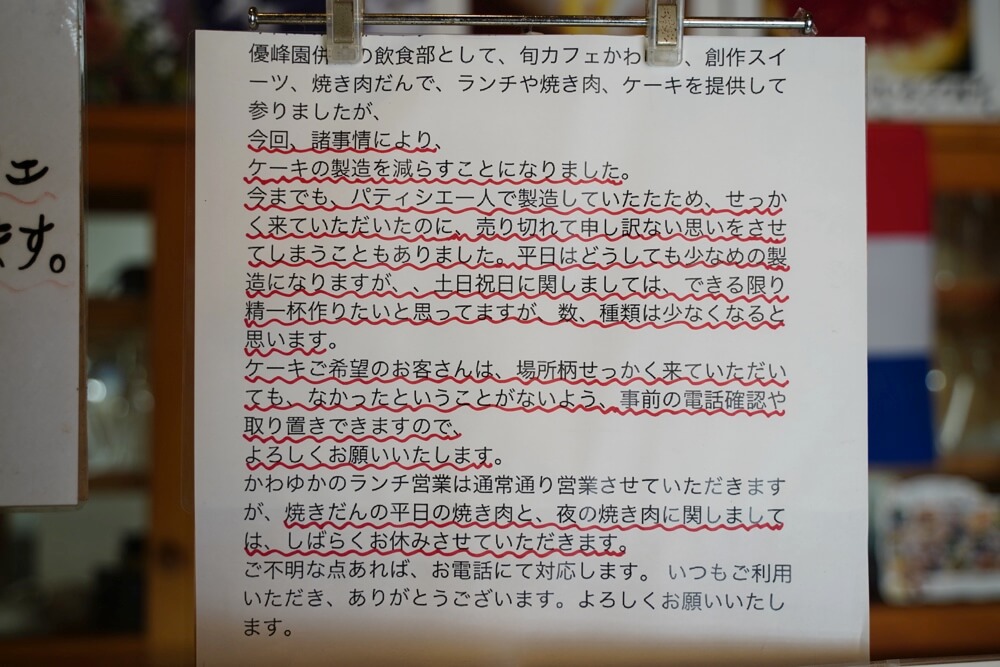 ェ
ます。
優峰園併 の飲食部として、旬カフェかわ 、創作スイ
ーツ、焼き肉だんで、ランチや焼き肉、ケーキを提供して
参りましたが、
今回、諸事情により、
ケーキの製造を減らすことになりました。
今までも、パティシエ一人で製造していたたため、せっか
く来ていただいたのに、売り切れて申し訳ない思いをさせ
てしまうこともありました。平日はどうしても少なめの製
造になりますが、、土日祝日に関しましては、できる限り
精一杯作りたいと思ってますが、数、種類は少なくなると
思います。
ケーキご希望のお客さんは、場所柄せっかく来ていただい
ても、なかったということがないよう、事前の電話確認や
取り置きできますので、
よろしくお願いいたします。
かわゆかのランチ営業は通常通り営業させていただきます
が、焼きだんの平日の焼き肉と、夜の焼き肉に関しまして
は、しばらくお休みさせていただきます。
ご不明な点あれば、お電話にて対応します。 いつもご利用
いただき、ありがとうございます。よろしくお願いいたし
ます。